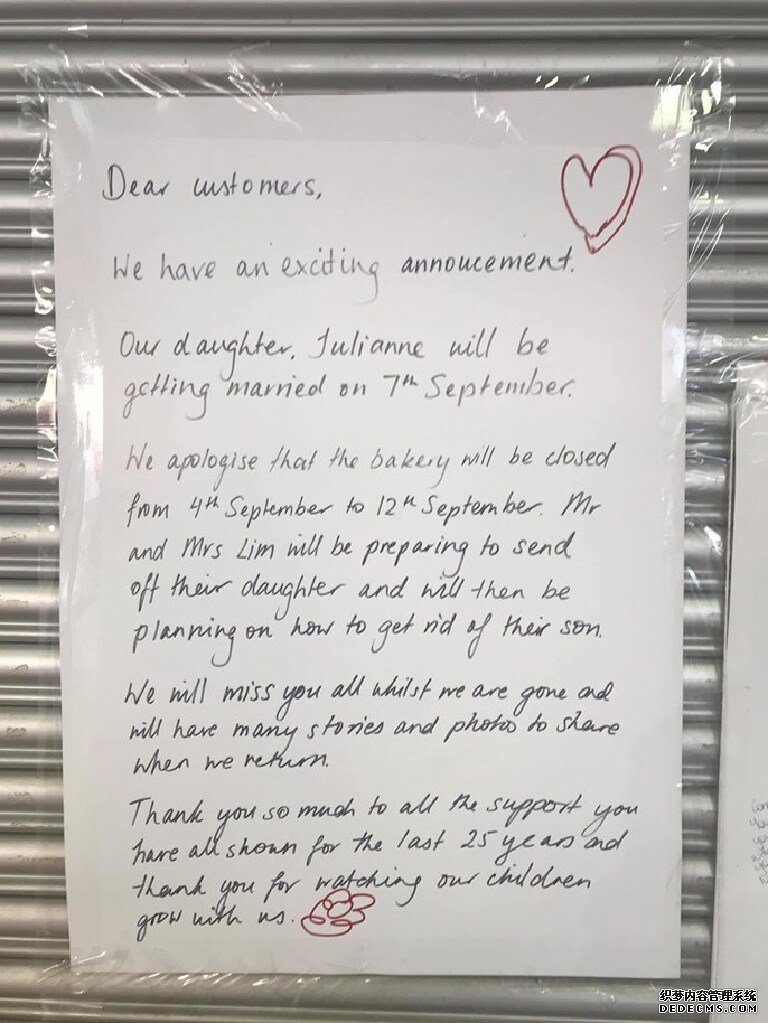 Dear customers,
We have an exciting annoucement.
Our daughter, Julianne will be
getting married on 7th September.
We apologise that the bakery will be closed
from 4th September to 12th September. Mr
and Mrs Lim will be preparing to send
off their daughter and will then be
planning on how to get rid of their son.
We will miss you all whilst we are gone and
will have many stories and photos to share
when we return.
Thank you so much to all the support you
have all shown for the last 25 years and
thank you for watching our children
grow with us.
织梦内容管理系统
DEDECMS.COM